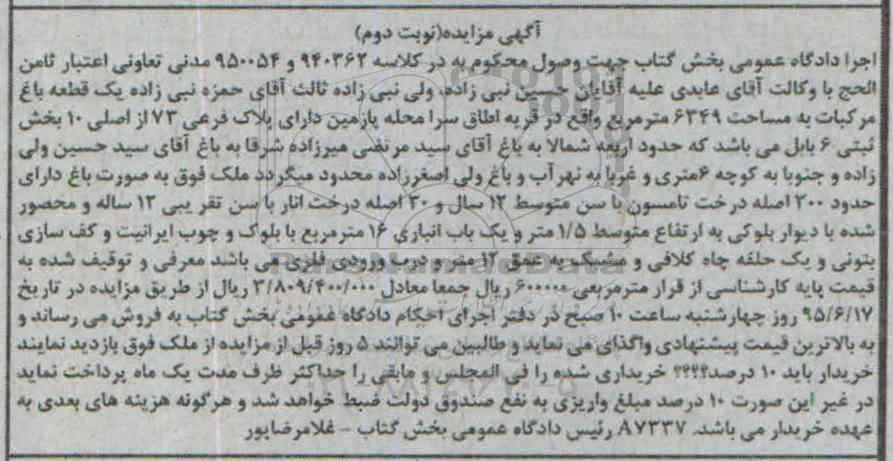 آگهی مزایده(نوبت دوم)
اجرا دادگاه عمومی بخش گتاب جهت وصول محکوم به در کلاسه ۹۴۰۳۶۲ و ۹۵۰۰۵۴ مدنی تعاونی اعتبار ثامن
الحج با وکالت آقای عابدی علیه آقایان حسین نبی زاده، ولی نبی زاده ثالث آقای حمزه نبی زاده یک قطعه باغ
مرکبات به مساحت ۶۳۴۹ مترمربع واقع در قریه اطاق سرا محله پازمین دارای پلاک فرعی ۷۳ از اصلی ۱۰ بخش
ثبتی ۶ بابل می باشد که حدود اربعه شمالا به باغ آقای سید مرتضی میرزاده شرقا به باغ آقای سید حسین ولی
زاده و جنوبا به کوچه ۶متری و غربا به نهر آب و باغ ولی اصغرزاده محدود میگردد ملک فوق به صورت باغ دارای
حدود ۲۰۰ اصله درخت تامسون با سن متوسط ۱۲ سال و ۳۰ اصله درخت انار با سن تقریبی ۱۳ ساله و محصور
شده با دیوار بلوکی به ارتفاع متوسط ۱/۵ متر و یک باب انباری ۱۶ مترمربع با بلوک و چوب ایرانیت و کف سازی
بتونی و یک حلقه چاه کلافی و مشبک به عمق ۱۲ متر و درب ورودی فلزی می باشد معرفی و توقیف شده به
قیمت پایه کارشناسی از قرار مترمربعی ۶۰۰۰۰۰ ریال جمعا معادل ۳/۸۰۹/۴۰۰/۰۰۰ ریال از طریق مزایده در تاریخ
۹۵/۶/۱۷ روز چهارشنبه ساعت ۱۰ صبح در دفتر اجرای احکام دادگاه عمومی بخش گتاب به فروش می رساند و
به بالاترین قیمت پیشنهادی واگذای می نماید و طالبین می توانند ۵ روز قبل از مزایده از ملک فوق بازدید نمایند
خریدار باید ۱۰ درصد؟؟؟؟ خریداری شده را فی المجلس و مابقی را حداکثر ظرف مدت یک ماه پرداخت نماید
در غیر این صورت ۱۰ درصد مبلغ واریزی به نفع صندوق دولت ضبط خواهد شد و هرگونه هزینه های بعدی به
عهده خریدار می باشد. A۷۳۳۷ رئیس دادگاه عمومی بخش گتاب - غلامرضاپور
ParsNamadData